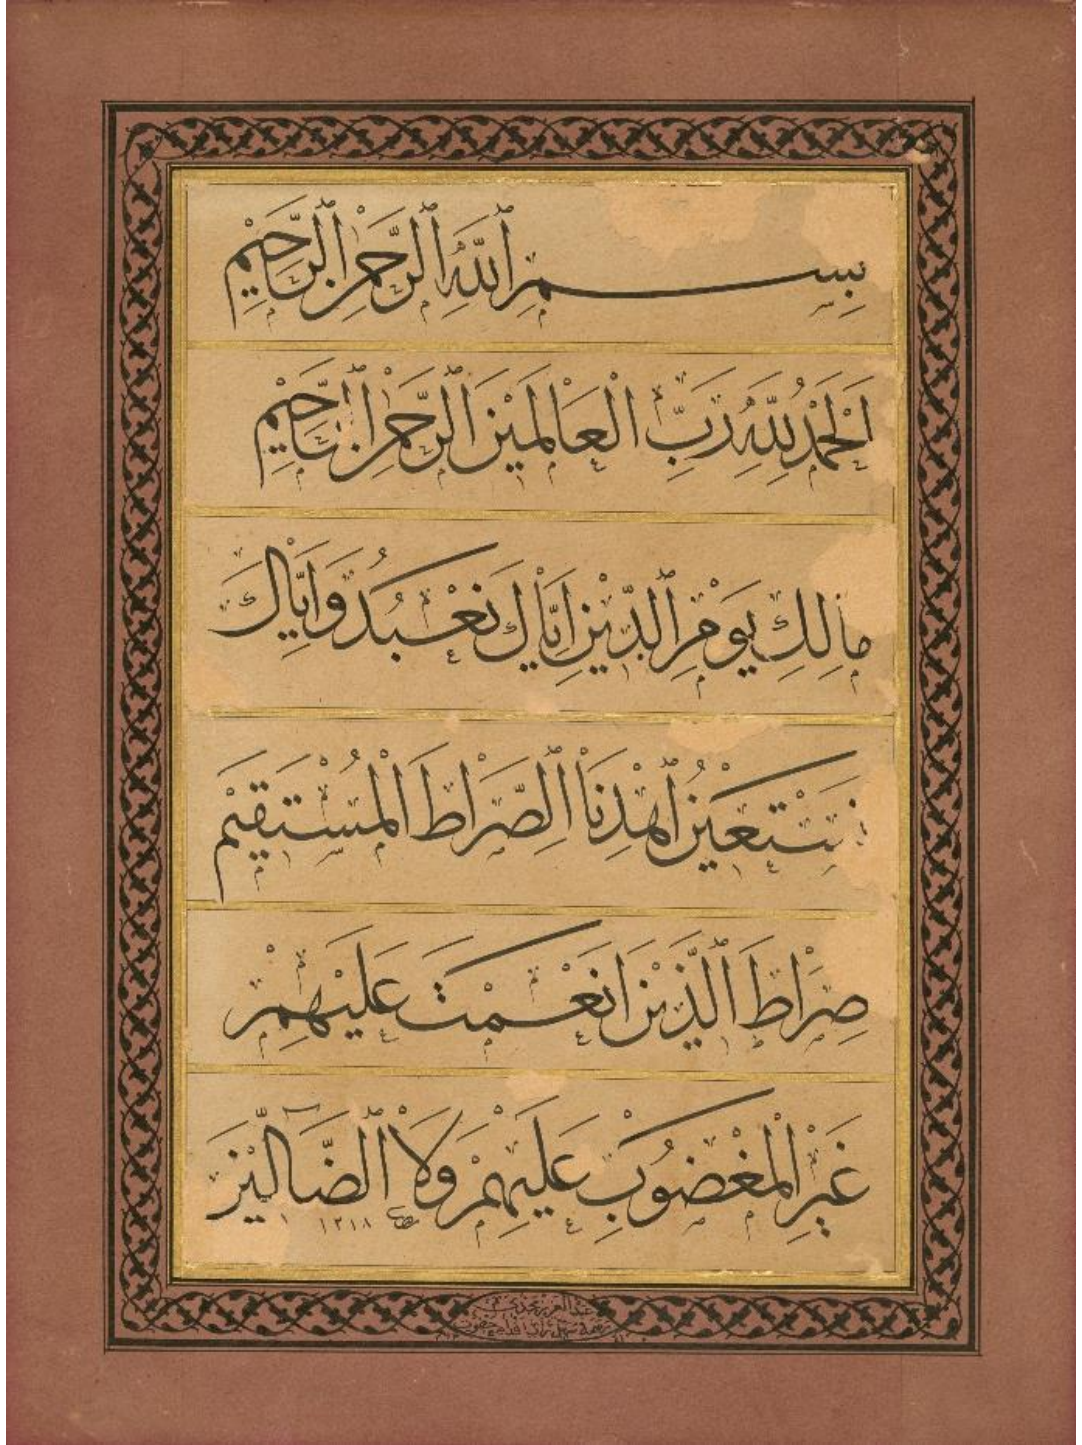 بِسْمِ ٱللَّهِ ٱلرَّحْمٰنِ ٱلرَّحِيْمِ
اَلْحَمْدُ لِلّٰهِ رَبِّ الْعَالَمِيْنَ ٱلرَّحْمٰنِ ٱلرَّحِيْمِ
مالِكِ يَوْمِ ٱلدِّيْنِ اِيَّاكَ نَعْبُدُ وَاِيَّاكَ
نَسْتَعِيْنُ ٱهْدِنَا ٱلصِّرَاطَ الْمُسْتَقِيْمَ
صِرَاطَ ٱلَّذِيْنَ اَنْعَمْتَ عَلَيْهِمْ
غَيْرِ الْمَغْضُوْبِ عَلَيْهِمْ وَلَا ٱلضَّآلِّيْنَ
١٢١٨